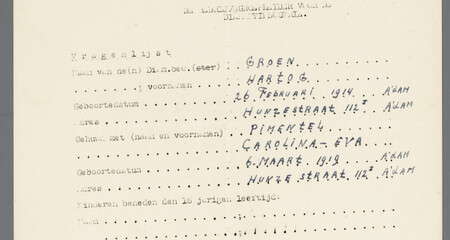 V r a g e n l i j s t
Naam van de(n) Dien.beu.(ster) : GROEN
; voornamen HARTOG
Geboortedatum 26 Februari 1914. A'DAM
Adres HUNZESTRAAT 112ᴵ A'DAM
Gehuwd met (naam en voornamen) PIMENTEL
CAROLINA-EVA
Geboortedatum 6 MAART 1919 A'DAM
Adres HUNZESTRAAT 112ᴵ A'DAM
Kinderen beneden den 16 jarigen leeftijd:
Naam